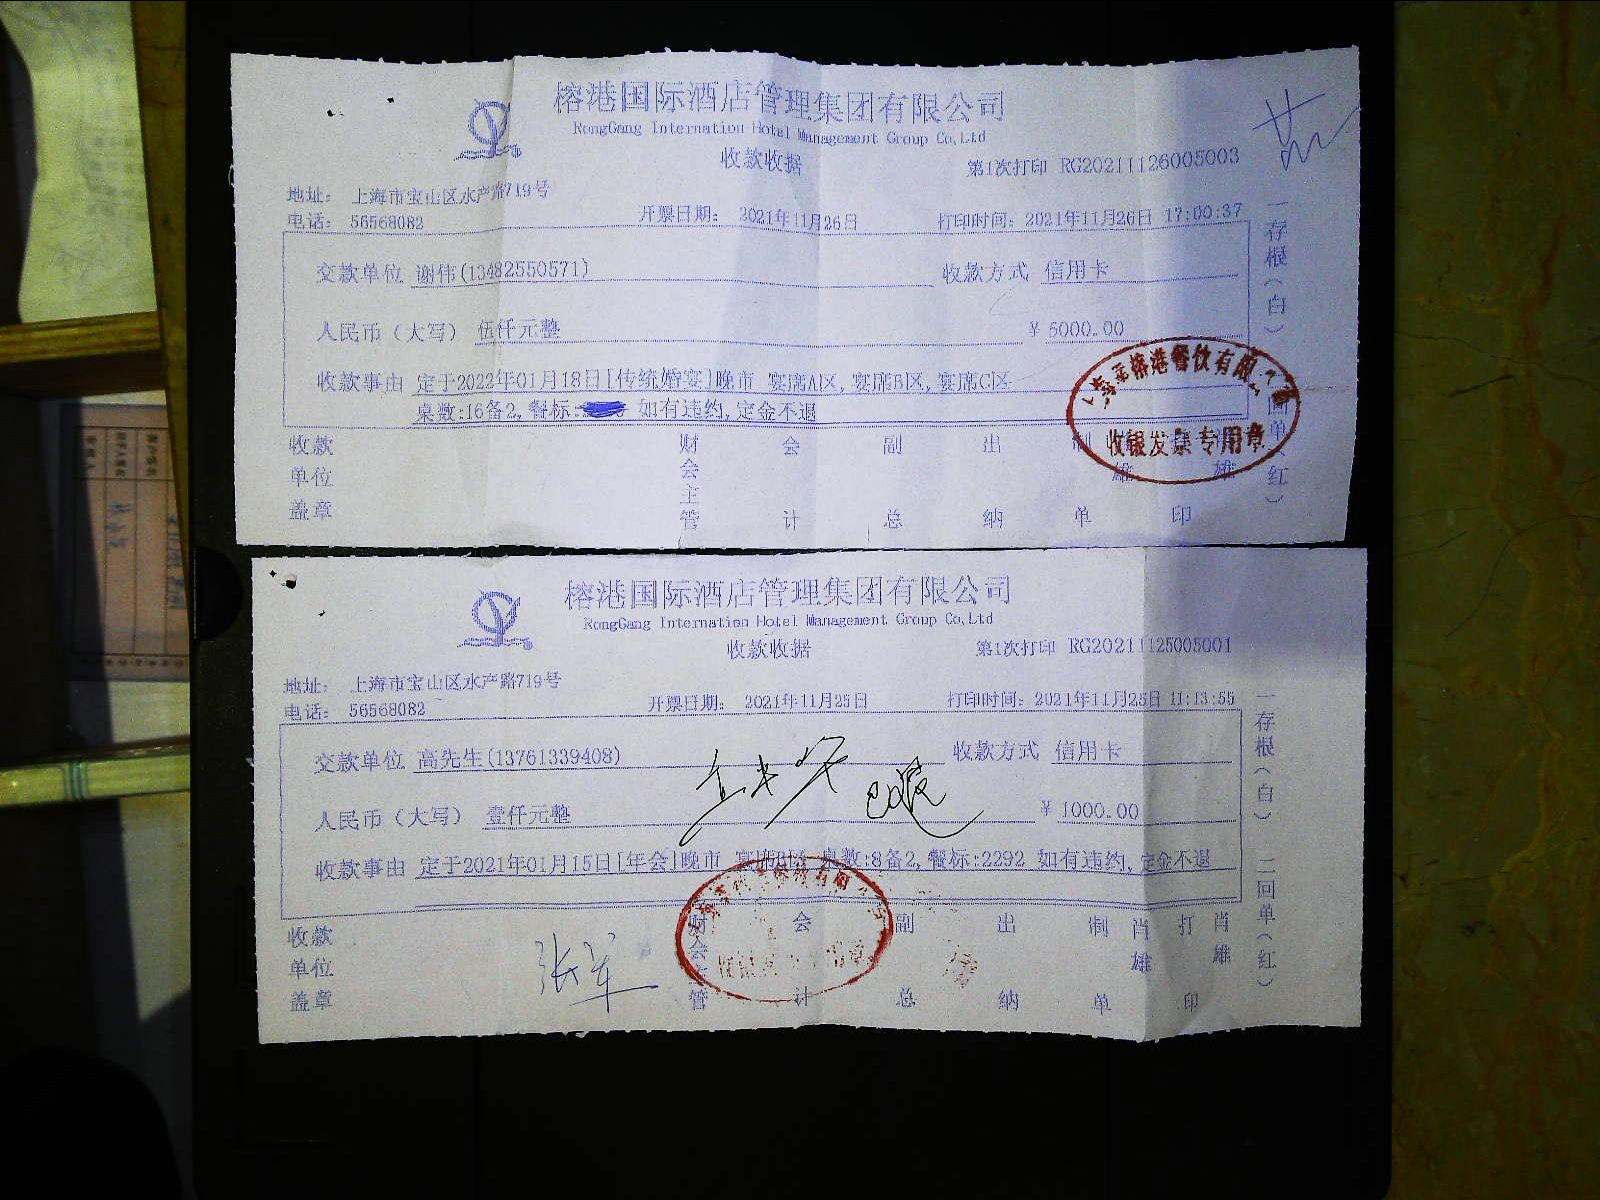 榕港国际酒店管理集团有限公司
RongGang Internation Hotel Management Group Co,Ltd
收款收据
第1次打印 RG20211126005003
地址: 上海市宝山区水产路719号
电话: 56568082
开票日期: 2021年11月26日
打印时间: 2021年11月26日 17:00:37
交款单位 谢伟(13482550571)
收款方式 信用卡
人民币(大写) 伍仟元整
¥ 5000.00
收款事由 定于2022年01月18日[传统婚宴]晚市 宴席A区,宴席B区,宴席C区
桌数:16备2,餐标: 如有违约,定金不退
收款单位盖章
财会主管
会计
副总
出纳
制单
打印
一存根(白)
二回单(红)
收银发票专用章
榕港国际酒店管理集团有限公司
RongGang Internation Hotel Management Group Co,Ltd
收款收据
第1次打印 RG20211125005001
地址: 上海市宝山区水产路719号
电话: 56568082
开票日期: 2021年11月25日
打印时间: 2021年11月25日 11:13:55
交款单位 高先生(13761339408)
收款方式 信用卡
人民币(大写) 壹仟元整
¥ 1000.00
收款事由 定于2021年01月15日[年会]晚市 宴席B区 桌数:8备2,餐标:2292 如有违约,定金不退
收款单位盖章
张军
财会主管
会计
副总
出纳
制单 肖雄
打印 肖雄
一存根(白)
二回单(红)